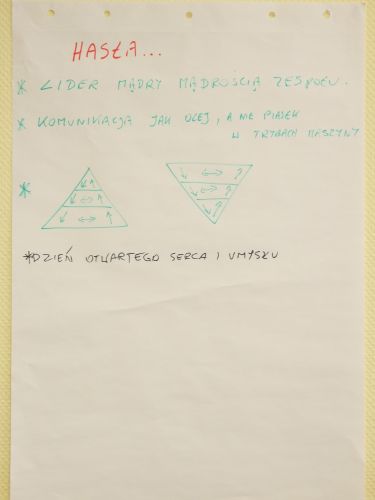 HASŁA...
* LIDER MĄDRY MĄDROŚCIĄ ZESPOŁU.
* KOMUNIKACJA JAK OLEJ, A NIE PIASEK
W TRYBACH MASZYNY
*
*DZIEŃ OTWARTEGO SERCA I UMYSŁU